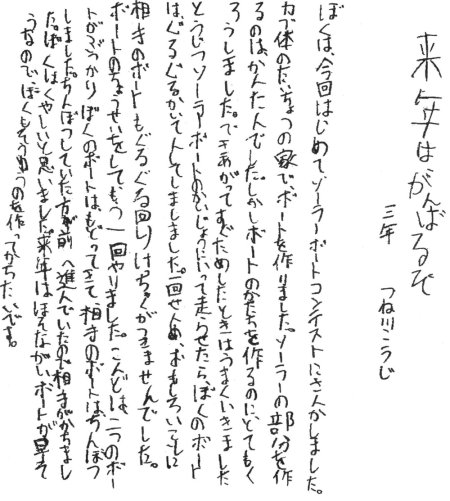 来年はがんばるぞ
三年　つね川こうじ
ぼくは、今回はじめてソーラーボートコンテストにさんかしました。
カブ体のたいちょうの家で、ボートを作りました。ソーラーの部分を作
るのは、かんたんでした。しかしボートのかたちを作るのに、とてもく
ろうしました。できあがってすぐためしたときはうまくいきました
とうじつソーラーボートのかいじょうにいって走らせたら、ぼくのボート
は、ぐるぐるかいてんしてしまいました。一回せんめ、おもしろいことに
相手のボートもぐるぐる回りけっちゃくがつきませんでした。
ボートのちょうせいをしてもう一回やりました。こんどは、二つのボー
トがぶつかりぼくのボートは、もどってきて、相手のボートは、ちんぼつ
しました。ちんぼつしていた方が前へ進んでいたので相手がかちまし
た。ぼくはくやしいと思いました。来年は ほそながいボートが早そ
うなのでぼくもそういうのを作ってかちたいです。